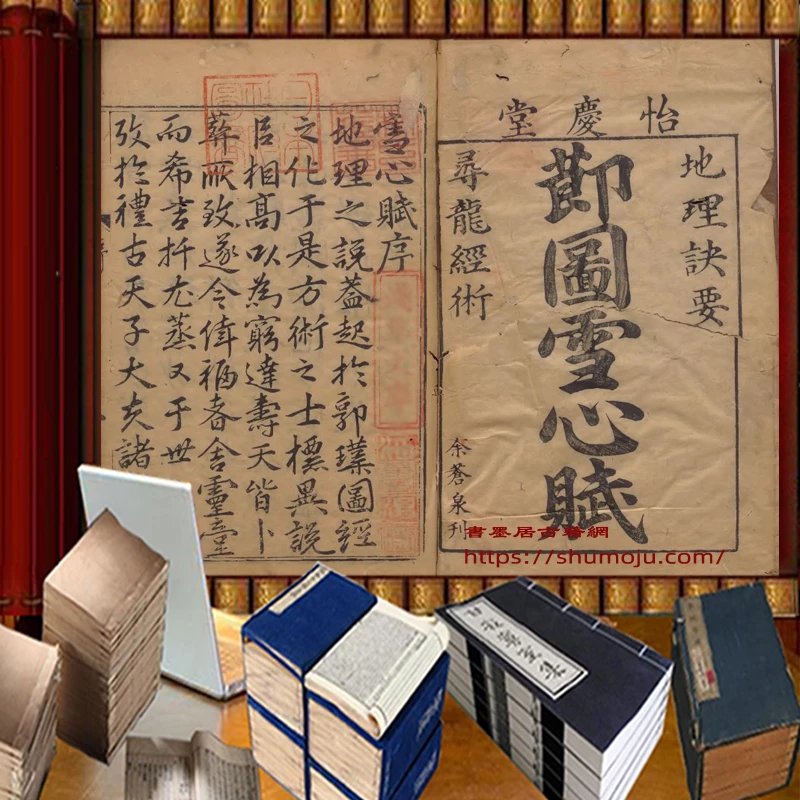 怡慶堂
地理訣要
莭圖雪心賦
尋龍經術
余蒼泉刊
雪心賦序
地理之說蓋起於郭璞圖經
之化于是方術之士標異說
相高以為窮達壽夭皆卜
葬所致遂令福者舍靈臺
而希吉扦尤蒸又于世
攷於禮古天子大夫諸
書墨居古書網
https://shumoju.com/